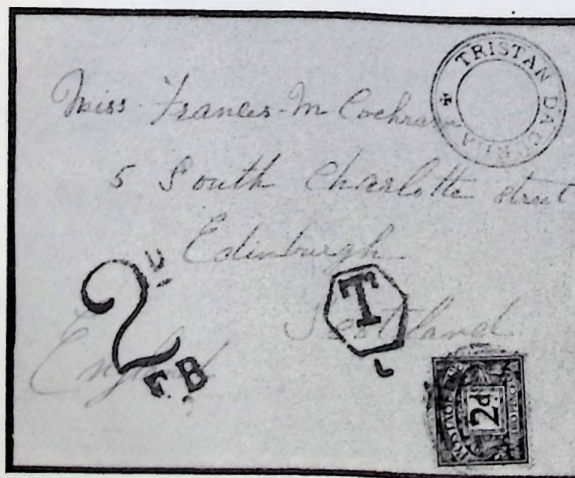 TRISTAN DA CUNHA
Miss Frances M Cochrane
5 South Charlotte street
Edinburgh
Scotland
England
2D
F.B
T
L
POSTAGE DUE
2d.